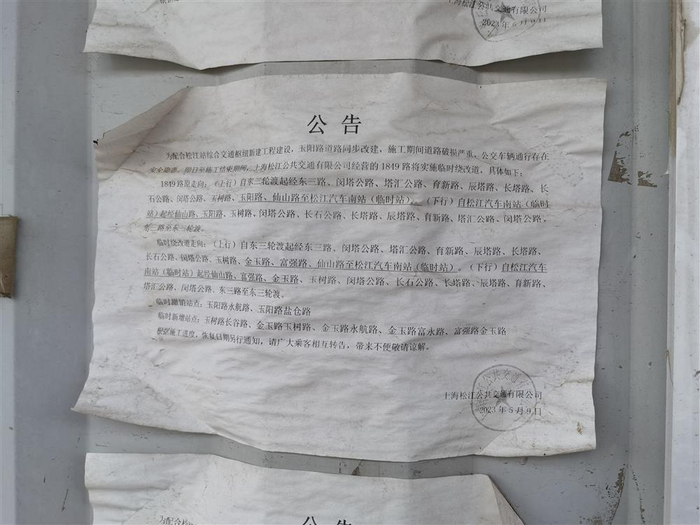 上海松江公共交通有限公司
2023年6月9日
公告
为配合松江站综合交通枢纽新建工程建设，玉阳路道路同步改建，施工期间道路破损严重，公交车辆通行存在
安全隐患，即日至施工结束期间，上海松江公共交通有限公司经营的1849路将实施临时绕改道，具体如下：
1849路原走向：（上行）自东三轮渡起经东三路、闵塔公路、塔汇公路、育新路、辰塔路、长塔路、长
石公路、闵塔公路、玉树路、玉阳路、仙山路至松江汽车南站（临时站）。（下行）自松江汽车南站（临时
站）起经仙山路、玉阳路、玉树路、闵塔公路、长石公路、长塔路、辰塔路、育新路、塔汇公路、闵塔公路、
东三路至东三轮渡。
临时绕改道走向：（上行）自东三轮渡起经东三路、闵塔公路、塔汇公路、育新路、辰塔路、长塔路、
长石公路、闵塔公路、玉树路、金玉路、富强路、仙山路至松江汽车南站（临时站）。（下行）自松江汽车
南站（临时站）起经仙山路、富强路、金玉路、玉树路、闵塔公路、长石公路、长塔路、辰塔路、育新路、
塔汇公路、闵塔公路、东三路至东三轮渡。
临时撤销站点：玉阳路永航路、玉阳路盐仓路
临时新增站点：玉树路长谷路、金玉路玉树路、金玉路永航路、金玉路富永路、富强路金玉路
根据施工进度，恢复日期另行通知，请广大乘客相互转告，带来不便敬请谅解。
上海松江公共交通有限公司
2023年6月9日
公告
为配合松